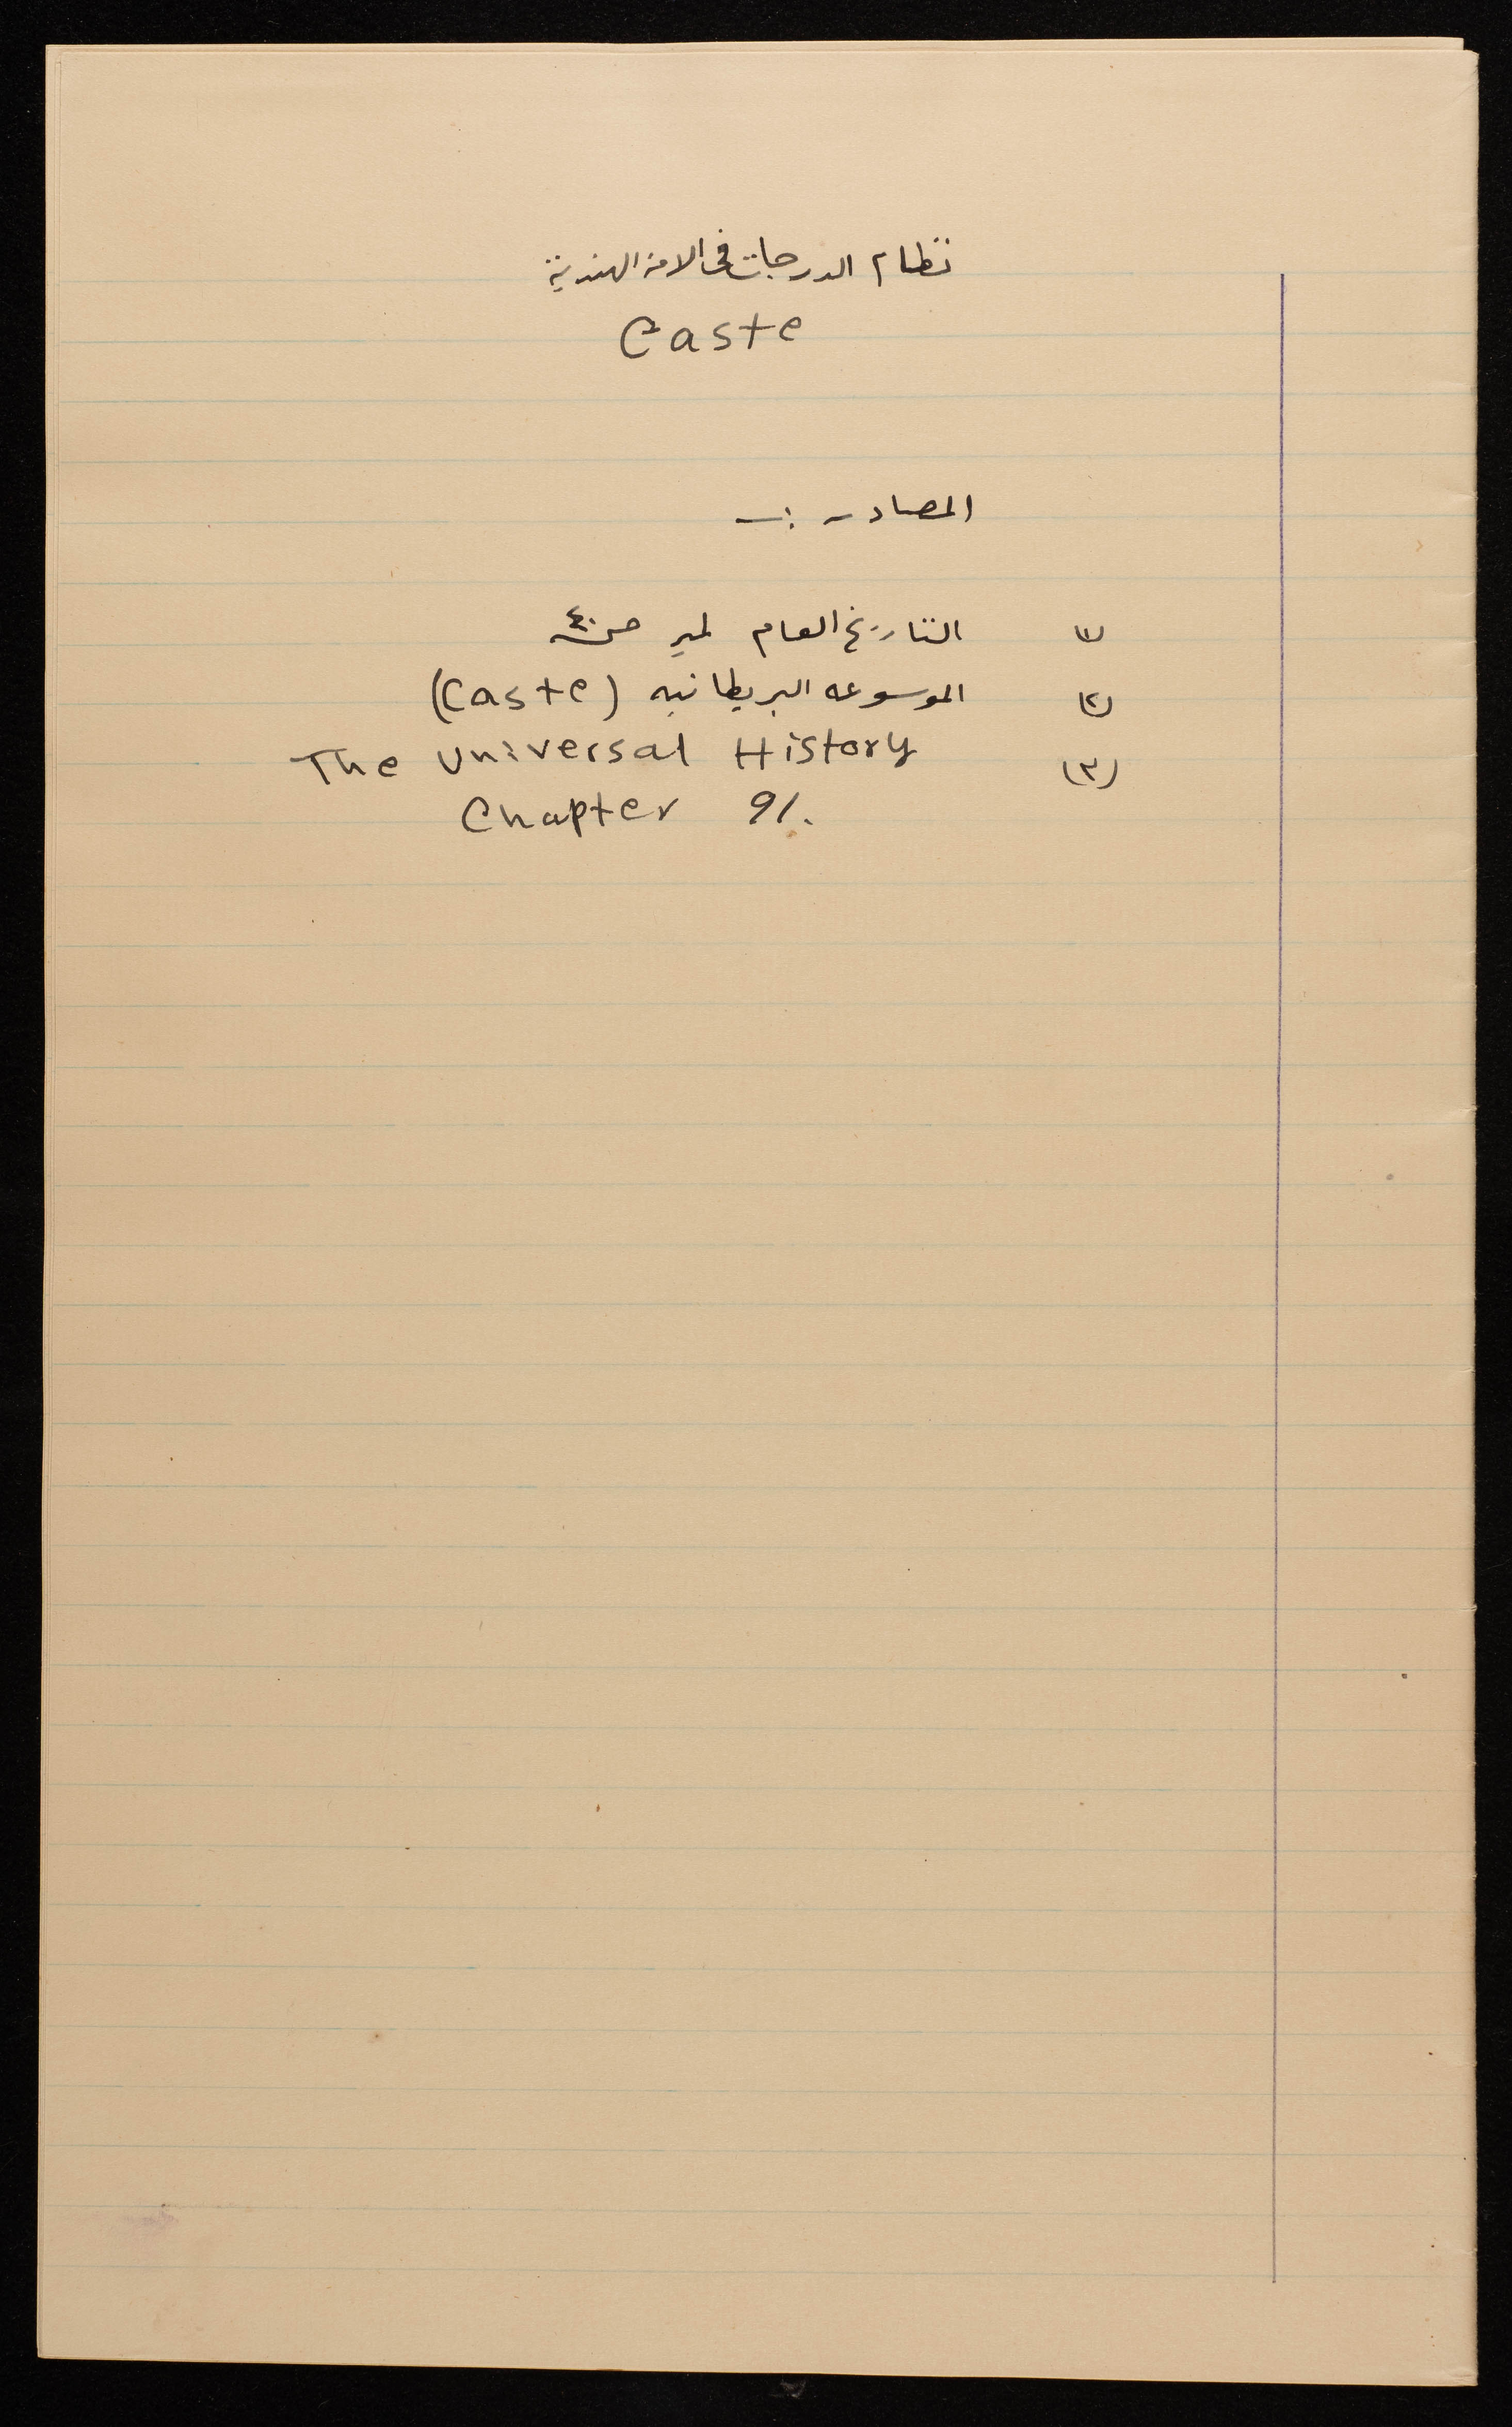 نظام الدرجات في الامة الهندية
Caste
المصادر :ـ
(١) التاريخ العام لمير ص ٤٠
(٢) الموسوعه البريطانيه (Caste)
(٣) The Universal History
Chapter 91.